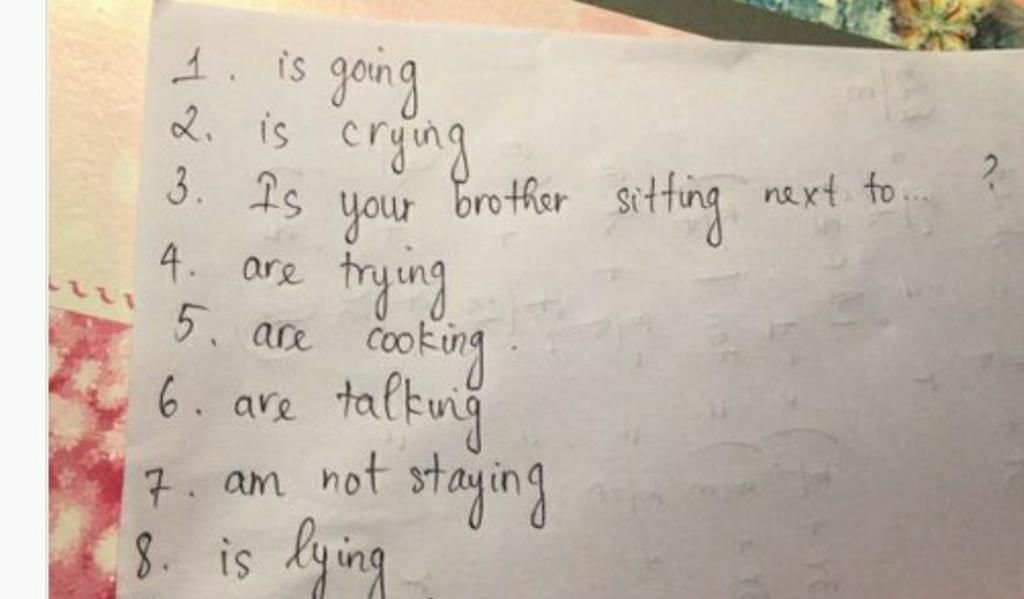 1. is going
2. is crying
3. Is your brother sitting next to... ?
4. are trying
5. are cooking.
6. are talking
7. am not staying
8. is lying